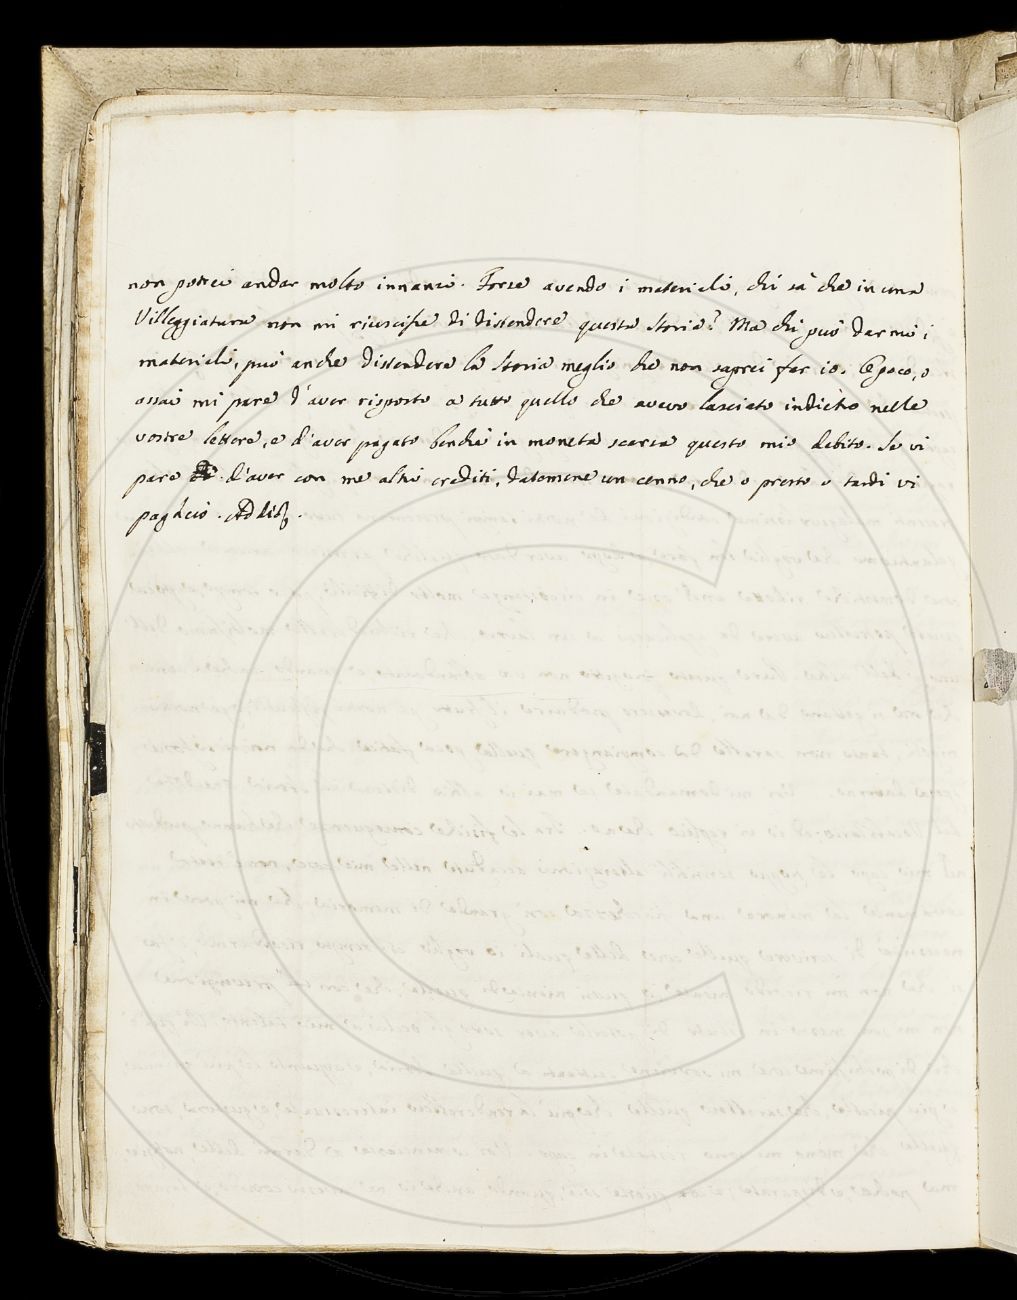 non potrei andar molto innanzi. Forse avendo i materiali, chi sà che in una
Villeggiatura non mi riuscisse di distendere questa storia? Ma chi può darmi i
materiali, può anche distendere la storia meglio che non saprei far io. O poco, o
assai mi pare d'aver risposto a tutto quello che avevo lasciato indietro nelle
vostre lettere, e d'aver pagato benchè in moneta scarsa questo mio debito. Se vi
pare d'aver con me altri crediti, datemene un cenno, che o presto o tardi vi
pagherò. Addio.